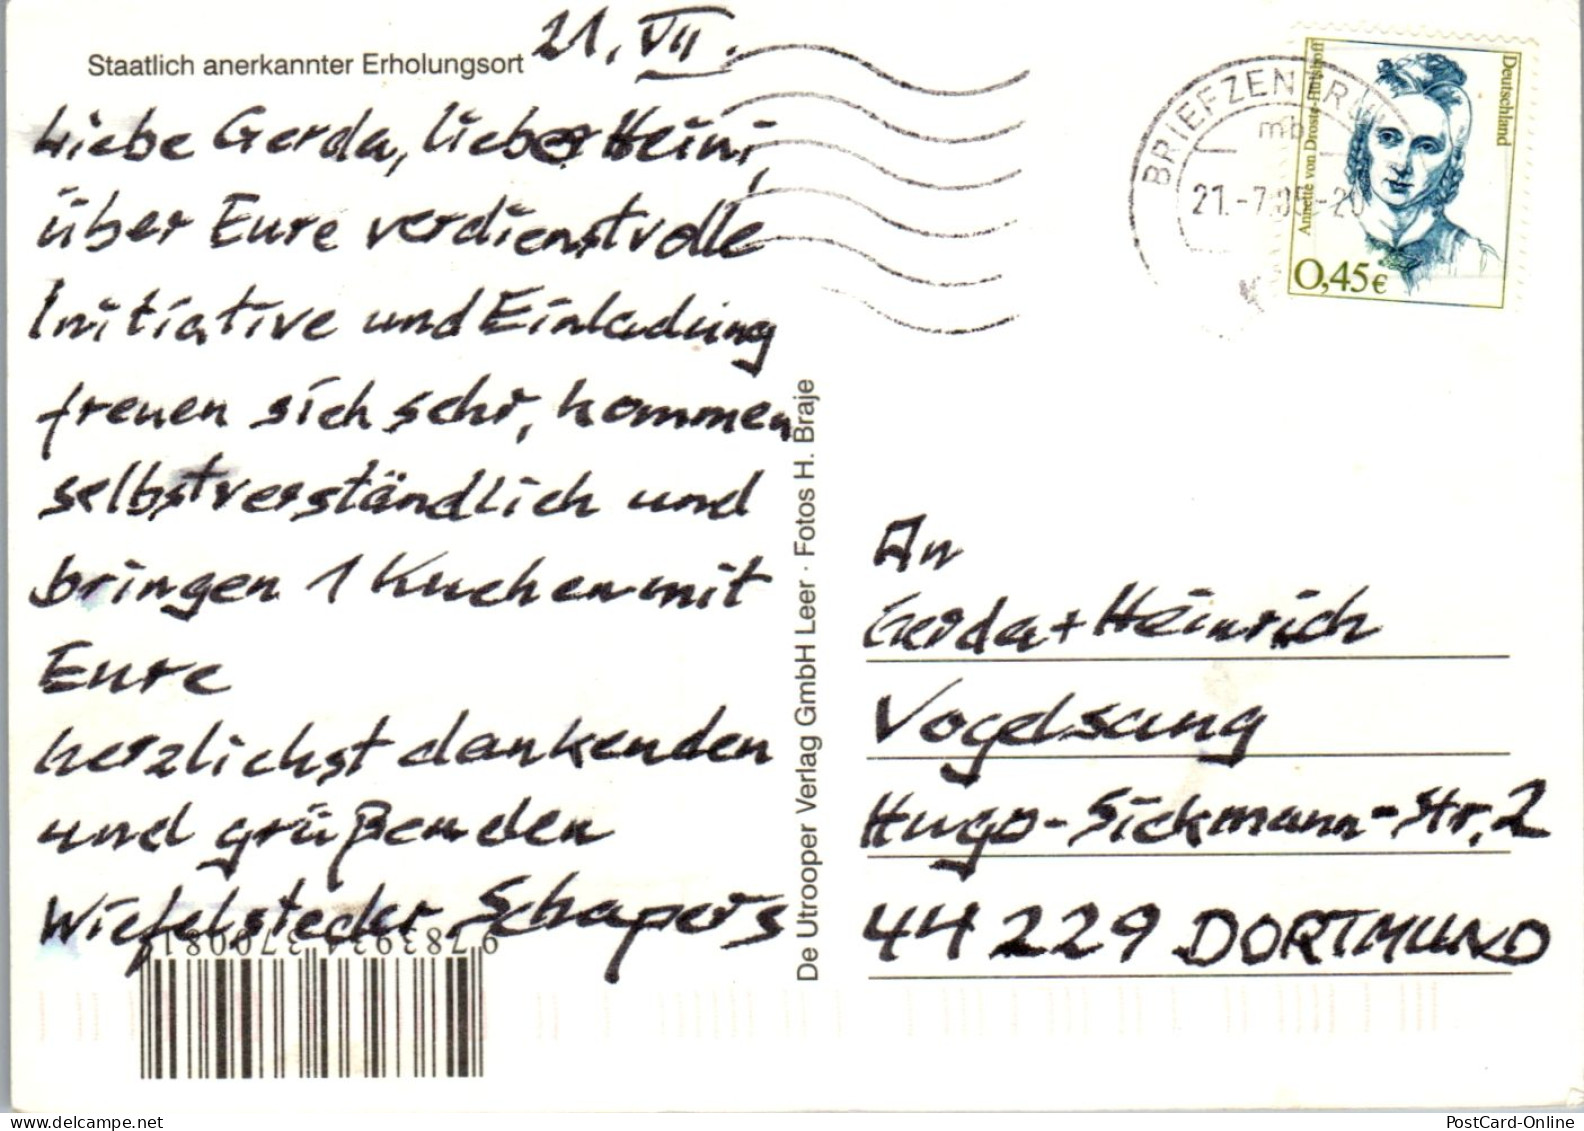 Staatlich anerkannter Erholungsort
21. VII.
Liebe Gerda, lieber Heini,
über Eure verdienstvolle
Initiative und Einladung
freuen sich sehr, kommen
selbstverständlich und
bringen 1 Kuchen mit
Eure
herzlichst dankenden
und grüßenden
Wiefelsteder Schapers
9 783934 370081
De Utrooper Verlag GmbH Leer · Fotos H. Braje
BRIEFZENTRUM
mb
21.-7.05-20
Deutschland
Annette von Droste-Hülshoff
0,45€
An
Gerda + Heinrich
Vogelsang
Hugo-Sickmann-Str. 2
44229 DORTMUND
PostCard-Online